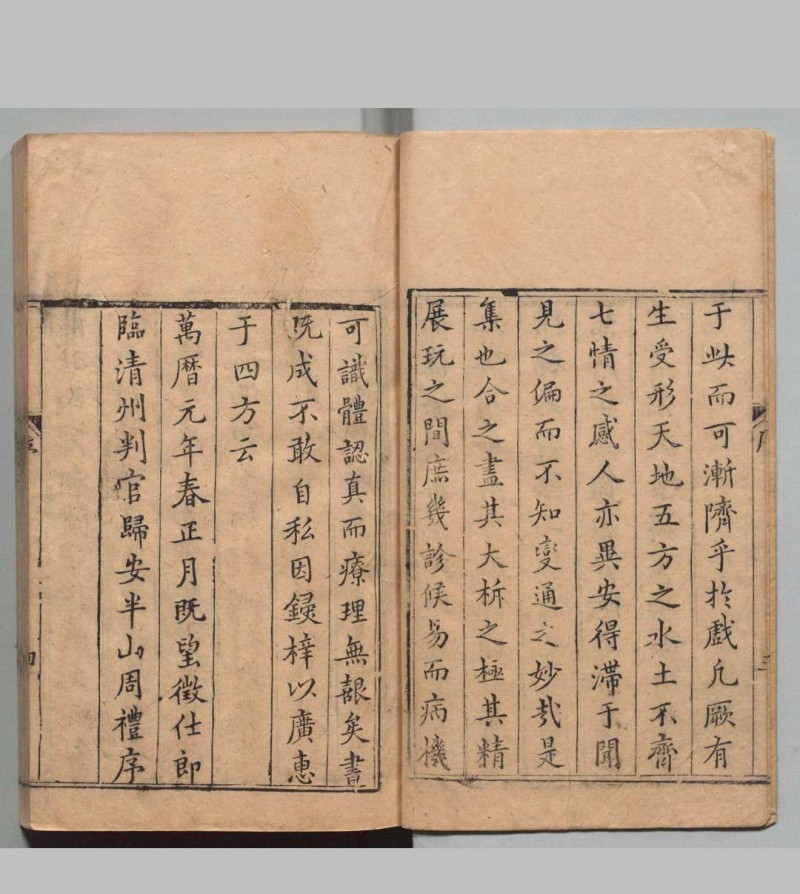 于此而可漸隮乎於戲凡厥有
生受形天地五方之水土不齊
七情之感人亦異安得滯于聞
見之偏而不知變通之妙哉是
集也合之盡其大析之極其精
展玩之間庶幾診候易而病機
可識體認真而療理無難矣書
既成不敢自私因錄梓以廣惠
于四方云
萬曆元年春正月既望徵仕郎
臨清州判官歸安半山周禮序
序
三
四